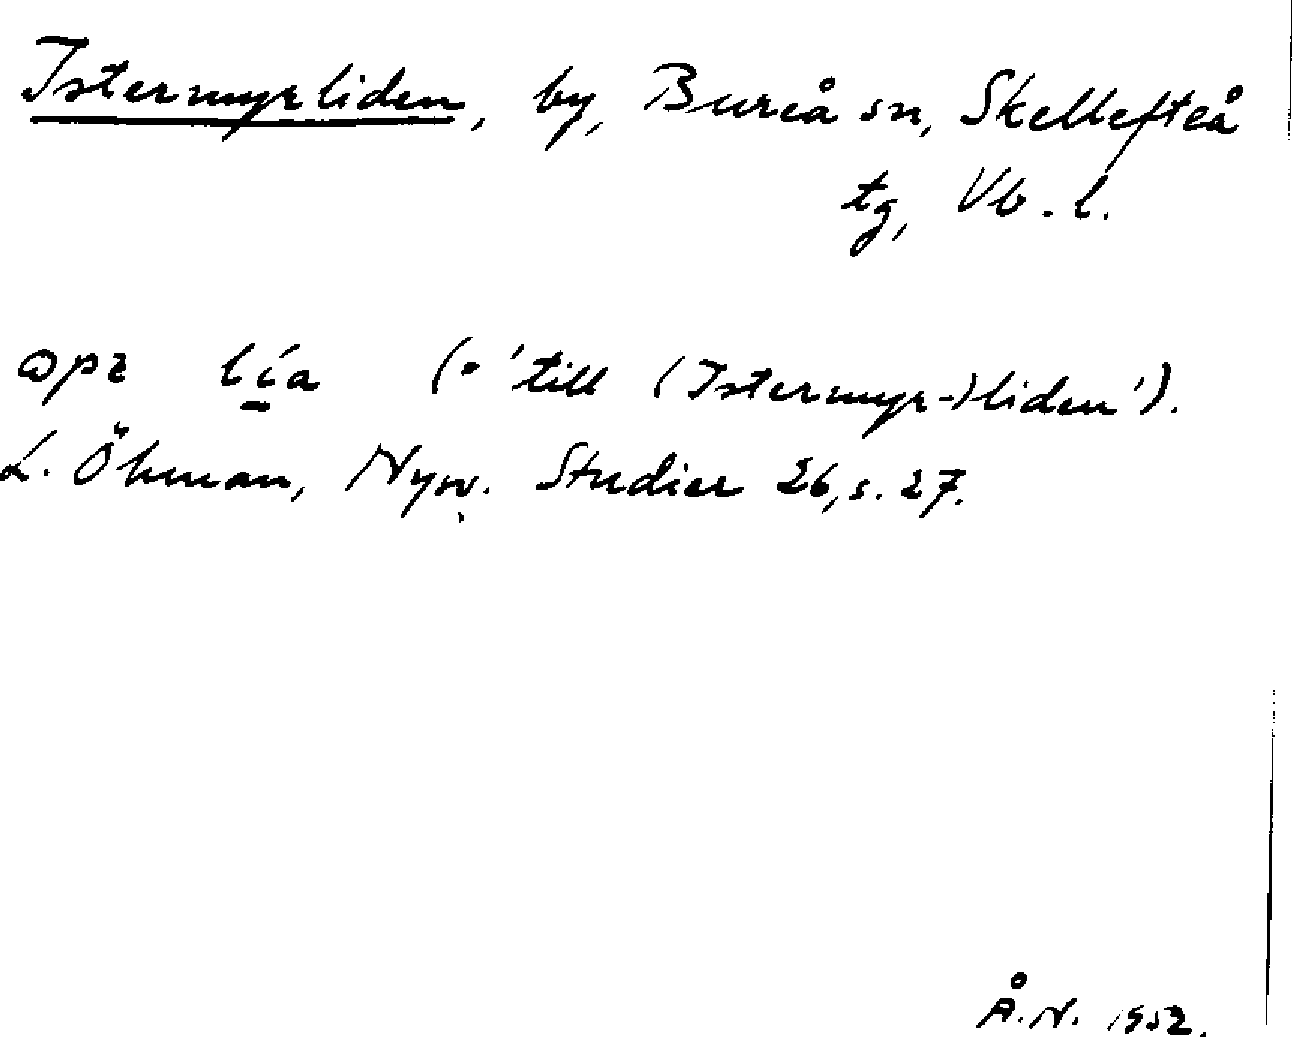 Istermyrliden, by, Bureå sn, Skellefteå
tg, Vb. l.
lí̱a (= 'till (Istermyr-)liden').
L. Öhman, Nysv. Studier 26, s. 27.
Å.N. 1952.